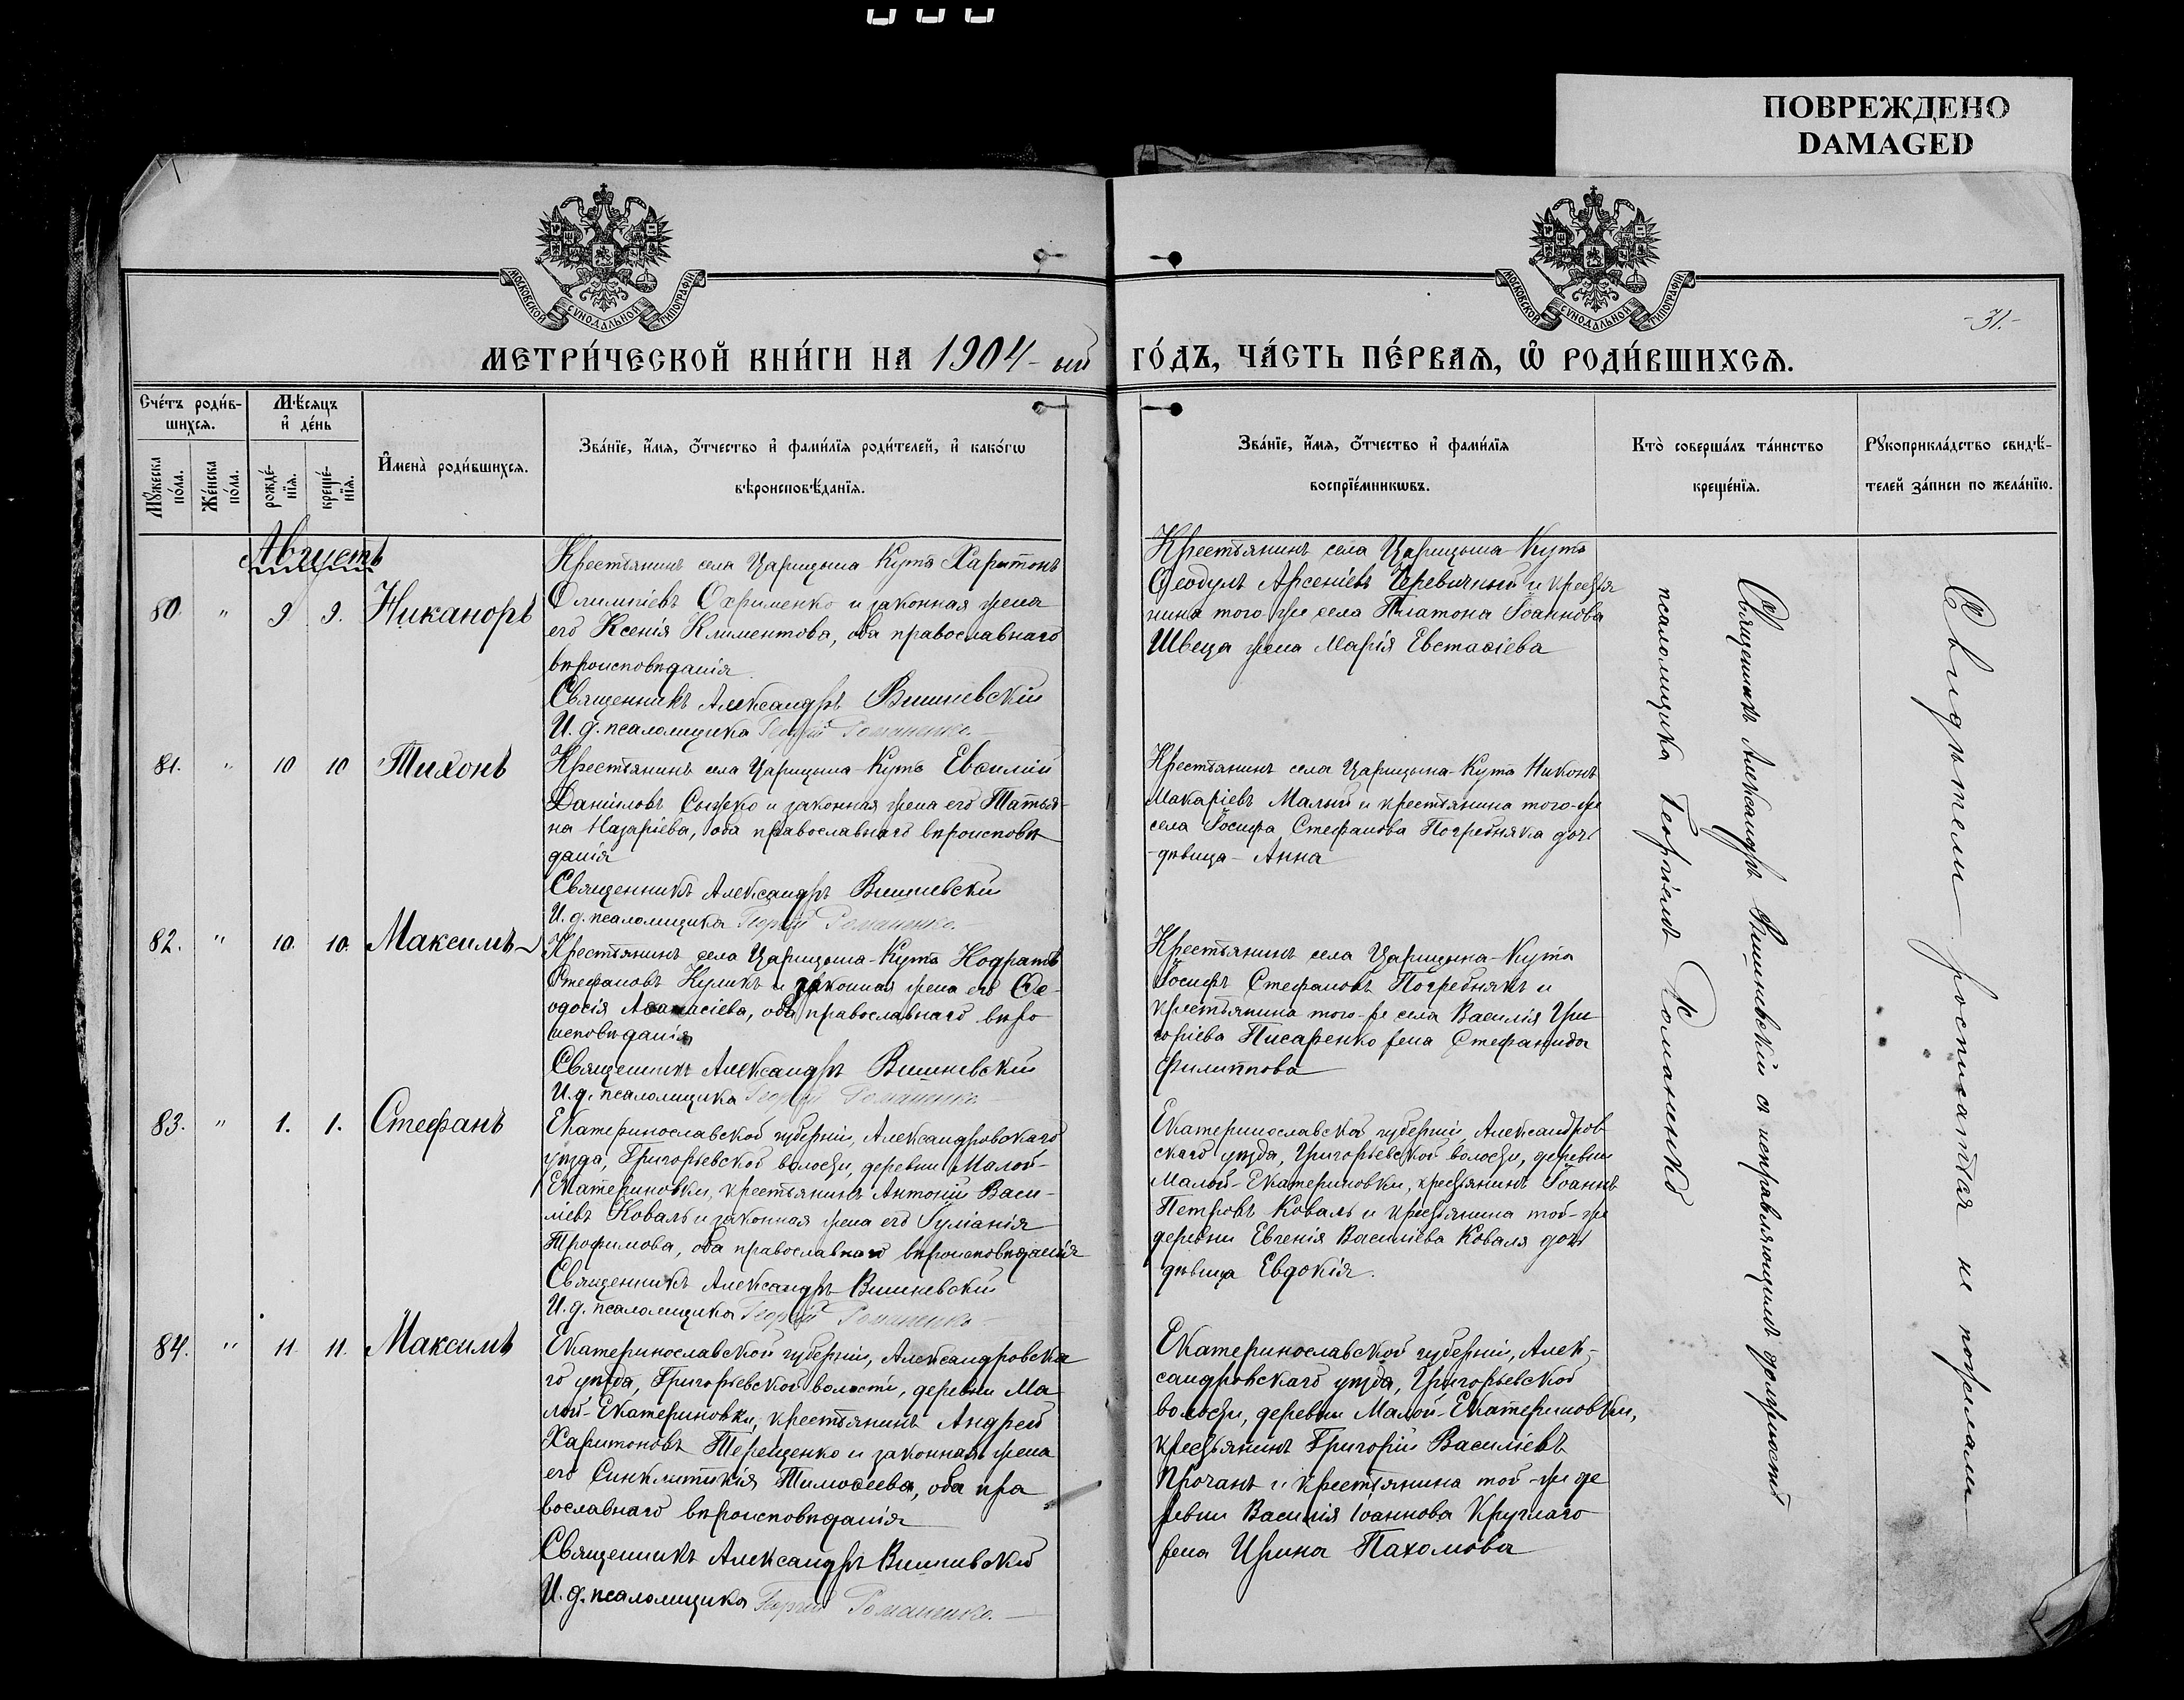 ПОВРЕЖДЕНО
DAMAGED
МОСКОВСКОЙ СѴНОДАЛЬНОЙ ТИПОГРАФІИ
МОСКОВСКОЙ СѴНОДАЛЬНОЙ ТИПОГРАФІИ
-31.-
МЕТРИ́ЧЕСКОЙ КНИ́ГИ НА 1904-ый
ГО́ДЪ, ЧА́СТЬ ПЕ́РВАѦ, Ѡ҆ РОДИ́ВШИХСѦ.
Сче́тъ роди́в-
шихсѧ.
Мѣ́сѧцъ
и҆ де́нь
И҆мена̀ роди́вшихсѧ.
Зва́нїе, и҆́мѧ, ѻ҆́тчество и҆ фами́лїѧ роди́телей, и҆ како́гѡ
вѣроисповѣ́данїѧ.
Мꙋ́жеска
по́ла.
Же́нска
по́ла.
рожде́-
нїѧ.
креще́-
нїѧ.
Зва́нїе, и҆́мѧ, ѻ҆́тчество и҆ фами́лїѧ
воспрїе́мникѡвъ.
Кто̀ соверша́лъ та́инство
креще́нїѧ.
Рꙋкоприкла́дство свидѣ́-
телей за́писи по жела́нїю.
Августъ
80. " 9 9. Никаноръ
Крестьянинъ села Царицына-Кута Харитонъ
Олимпіевъ Охрименко и законная жена
его Ксенія Климентова, оба православнаго
вѣроисповѣданія
Священникъ Александръ Вишневскій
И. д. псаломщика Георгій Романенко.
Крестьянинъ села Царицына-Кута
Ѳеодулъ Арсеніевъ Черевичный и крестья
нина того же села Платона Іоаннова
Швеца жена Марія Евстаѳіева
81. " 10 10 Тихонъ
Крестьянинъ села Царицына-Кута Евѳимій
Даніиловъ Сыжко и законная жена его Татья-
на Назаріева, оба православнаго вѣроисповѣ
данія
Священникъ Александръ Вишневскій
И. д. псаломщика Георгій Романенко.
Крестьянинъ села Царицына-Кута Никонъ
Макаріевъ Малый и крестьянина того-же
села Іосифа Стефанова Погребняка дочь
-дѣвица- Анна
82. " 10. 10. Максимъ
Крестьянинъ села Царицына-Кута Кодратъ
Стефановъ Куликъ и законная жена его Ѳе-
одосія Аѳанасіева, оба православнаго вѣро
исповѣданія
Священникъ Александръ Вишневскій
И. д. псаломщика Георгій Романенко
Крестьянинъ села Царицына-Кута
Іосифъ Стефановъ Погребнякъ и
крестьянина того-же села Василія Гри
горіева Писаренко жена Стефанида
Филиппова
83. " 1. 1. Стефанъ
Екатеринославской губерніи, Александровскаго
уѣзда, Григорьевской волости, деревни Малой-
Екатериновки, крестьянинъ Антоній Васи-
ліевъ Коваль и законная жена его Іуліанія
Трофимова, оба православнаго вѣроисповѣданія
Священникъ Александръ Вишневскій
И. д. псаломщика Георгій Романенко
Екатеринославской губерніи, Александров
скаго уѣзда, Григорьевской волости, деревни
Малой-Екатериновки, крестьянинъ Іоаннъ
Петровъ Коваль и крестьянина той-же
деревни Евгенія Василіева Коваля дочь
дѣвица Евдокія.
84. " 11. 11. Максимъ
Екатеринославской губерніи, Александровска
го уѣзда, Григорьевской волости, деревни Ма
лой-Екатериновки, крестьянинъ Андрей
Харитоновъ Терещенко и законная жена
его Синклитикія Тимоѳеева, оба пра
вославнаго вѣроисповѣданія
Священникъ Александръ Вишневскій
И. д. псаломщика Георгій Романенко.
Екатеринославской губерніи, Алек-
сандровскаго уѣзда, Григорьевской
волости, деревни Малой-Екатериновки,
крестьянинъ Григорій Василіевъ
Прочанъ и крестьянина той-же де
ревни Василія Іоаннова Круглаго
жена Ирина Пахомова
Священникъ Александръ Вишневскій съ исправляющимъ должность
псаломщика Георгіемъ Романенко
Свидѣтели росписаться не пожелали